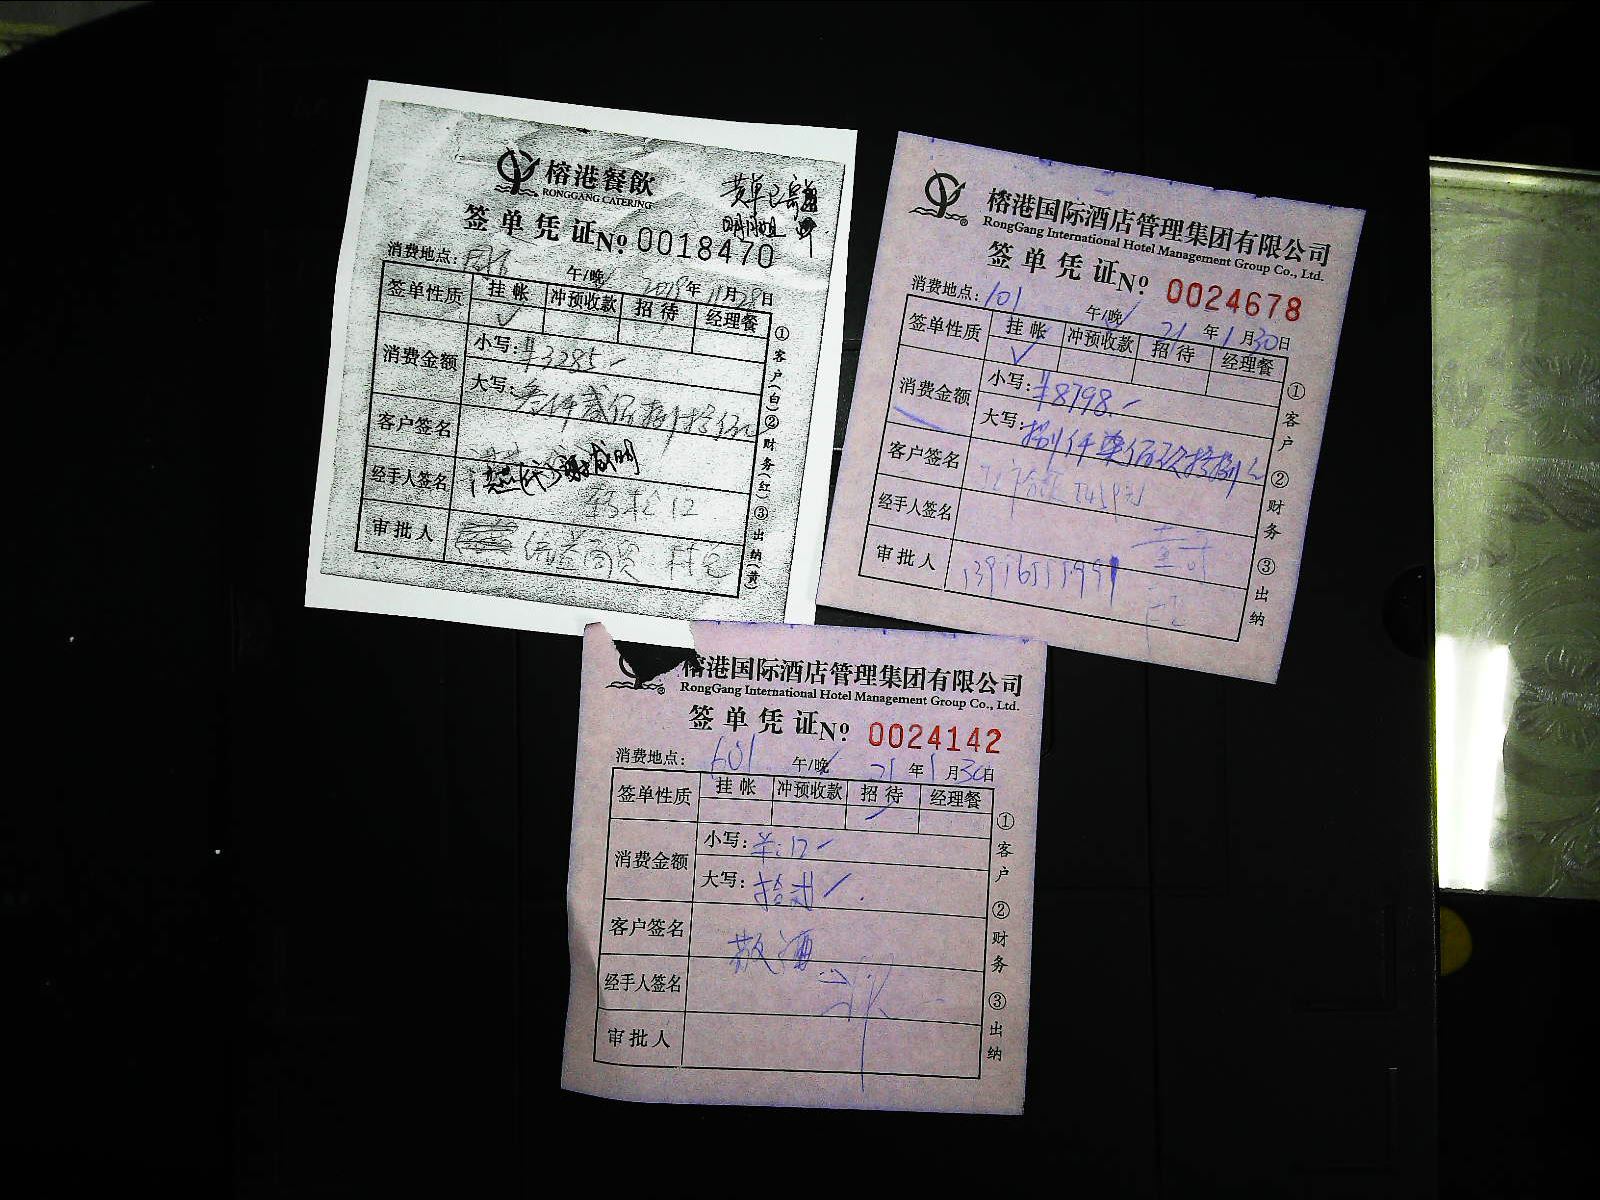 榕港餐飲
RONGGANG CATERING
签单凭证 Nº 0018470
消费地点: 午/晚 2018年11月28日
签单性质 挂帐 冲预收款 招待 经理餐
✓
消费金额 小写: ¥3285-
大写: 叁仟贰佰捌拾伍元
客户签名
经手人签名
审批人
①客户(白)②财务(红)③出纳(黄)
榕港国际酒店管理集团有限公司
RongGang International Hotel Management Group Co., Ltd.
签单凭证 Nº 0024678
消费地点: 101 午/晚✓ 21年1月30日
签单性质 挂帐 冲预收款 招待 经理餐
✓
消费金额 小写: ¥8798.-
大写: 捌仟柒佰玖拾捌元
客户签名
经手人签名
审批人
①客户 ②财务 ③出纳
榕港国际酒店管理集团有限公司
RongGang International Hotel Management Group Co., Ltd.
签单凭证 Nº 0024142
消费地点: 601 午/晚✓ 21年1月30日
签单性质 挂帐 冲预收款 招待 经理餐
✓
消费金额 小写:
大写: 拾贰
客户签名 散酒
经手人签名
审批人
①客户 ②财务 ③出纳